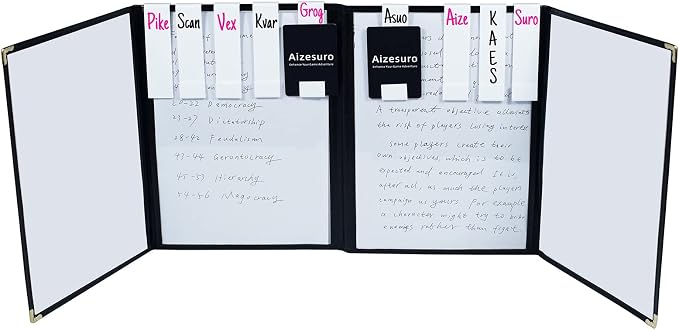 Pike
Scan
Vex
Kvar
Grog
Asuo
Aize
KAES
Suro
Aizesuro
Enhance Your Game Adventure
Aizesuro
Enhance Your Game Adventure
of
20-22 Democracy
23-27 Dictatorship
28-42 Feudalism
43-44 Gerontocracy
45-53 Hierarchy
54-56 Magocracy
A transparent objective
the risk of players losing interest
some players create their
own objectives, which is to be
expected and encouraged. It is,
after all, as much the players
campaign as yours. For example
a character might try to bribe
enemies rather than fight